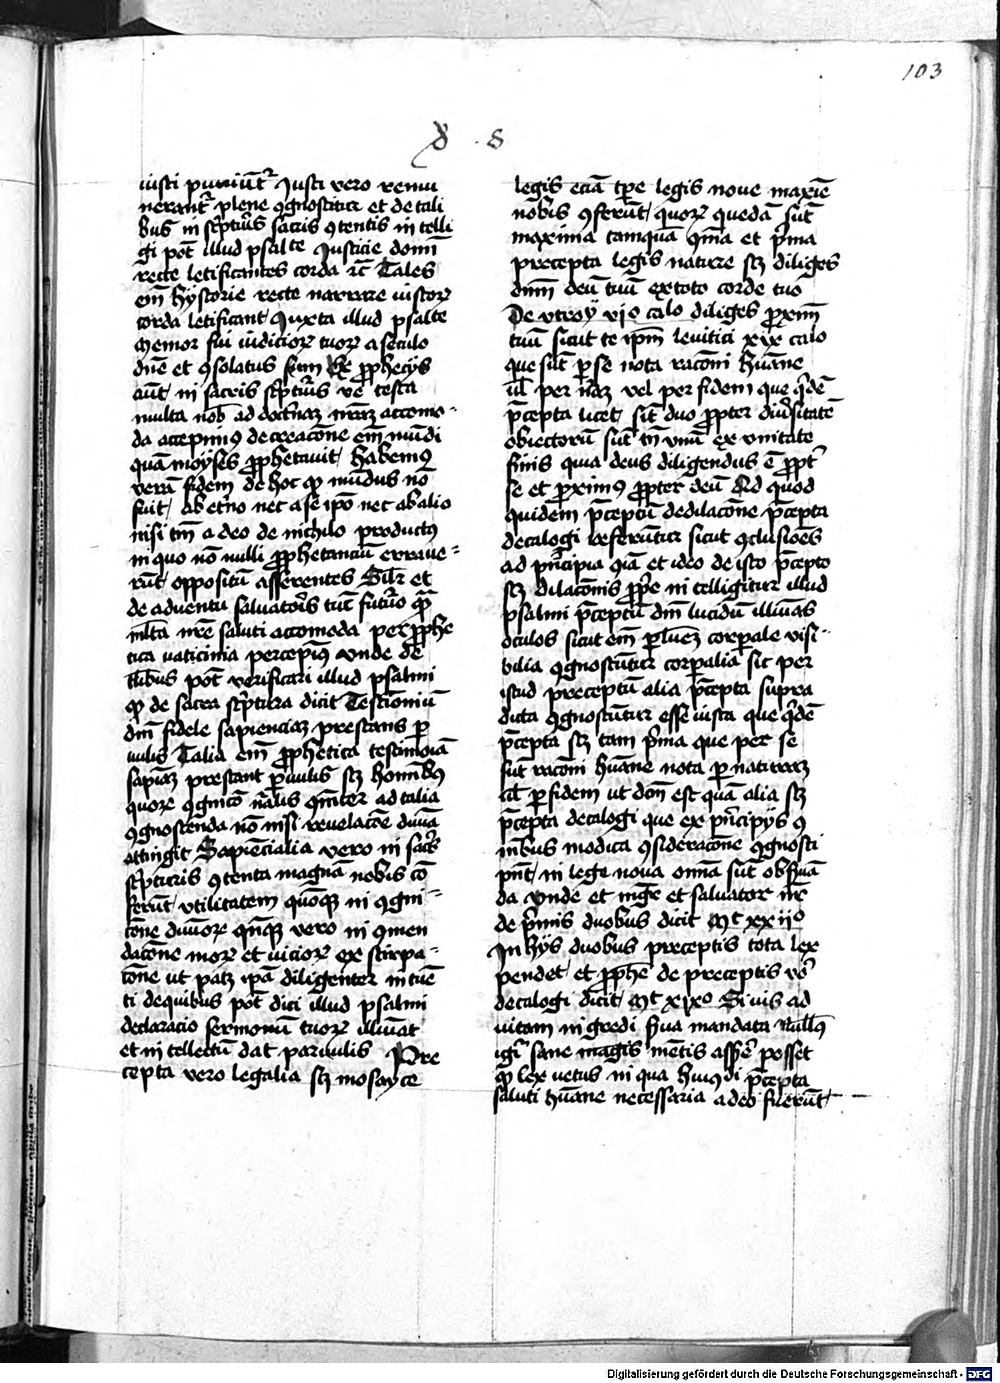 103
iusti puniunt᷑ Iusti vero remu
nerant᷑ plene ꝯgnoscitur et de tali
bus in sc̓pturis sacris ꝯtentis intelli
gi pot̄ illud psalte Iusticie domī
recte letificantes corda ꝛc̄ Tales
em̄ hystorie recte narrare iustoꝝ
corda letificant Iuxta illud psalte
Memor fui iudicioꝝ tuoꝝ a seculo
dn̄e et ꝯsolatus sum Ex ꝓphecijs
aūt in sacris sc̓pturis vet̓ testa
multa nob̄ ad doctrīaꝫ nrāꝫ accomo
da accepimꝰ de creacōne em̄ mūdi
quam moyses ꝓphetauit habemꝰ
verā fidem de hoc ꝙ mūdus nō
fuit ab etn̄o nec a se ip̄o nec ab alio
nisi tm̄ a deo de nichilo productꝰ
in quo nō nulli ꝓphetanciū erraue
rūt oppositū asserentes Silr̄ et
de aduentu saluatoris tūc futuro
mlt̄a nr̄e saluti accomoda per ꝓphe
tica vaticinia percepimꝰ vnde de
tlibus pot̄ verificari illud psalmi
ꝙ de sacra sc̓ptura dicit Testimoniū
dn̄i fidele sapienciaꝫ prestans ꝑ
uulis Talia em̄ ꝓphetica testimonia
sapiāꝫ prestant ꝑuulis sꝫ hominibꝰ
quoꝝ ꝯgnicō nālis ad talia
ꝯgnoscenda nō nisi reuelacōe diuīa
attingit Sapiencialia vero in sac̓s
sc̓pturis ꝯtenta magnā nobis cō
ferūt vtilitatem in ꝯgni
cōne diuinoꝝ vero in ꝯmen
dacōne moꝝ et vicioꝝ exstirpa
cōne ut patꝫ ip̄a diligenter intuē
ti de quibus pot̄ dici illud psalmi
declaracio sermonū tuoꝝ illuīat
et intellectū dat paruulis Pre
cepta vero legalia sꝫ mosayce
legis eciā tp̄e legis noue maxīe
nobis ꝯferūt quoꝝ quedā sūt
maxima tamquā et p̓ma
precepta legis nature sꝫ diliges
dn̄m deū tuū ex toto corde tuo
De vtroꝝ vjo calo diliges ꝓximū
tuū sicut te ip̄m leuitici xix calo
que sūt ꝑ se nota racōni huāne
ul̄ per nāꝫ vel per fidem que q̓dē
p̄cepta licet sīt duo ꝓpter diu̓sitatē
obiectorū sūt tn̄ vnū ex vnitate
finis quia deus diligendus ē ꝓpt̓
se et ꝓximꝰ ꝓpter deū Ad quod
quidem p̄ceptū de dilacōne p̄cepta
decalogi referūtur sicut ꝯclusiōes
ad p̓ncipia et ideo de isto p̄cepto
sꝫ dilacōnis ꝓp̓e intelligitur illud
psalmi p̄ceptū dn̄i lucidū illuīas
oculos sicut em̄ ꝑ lucem corporale visi
bilia ꝯgnoscūtur corporalia sic per
istud preceptū alia p̄cepta supra
dicta ꝯgnoscūtur esse iusta que q̓dē
p̄cepta sꝫ tam p̓ma que per se
sūt racōni huāne nota ꝑ naturaꝫ
ul̄ ꝑ fidem ut dcm̄ est quā alia sꝫ
p̄cepta decalogi que ex p̓ncipijs ꝯ
modica ꝯsideracōne ꝯgnosci
pn̄t in lege noua omīa sūt obs̓uā
da Vnde et mgr̄ et saluator nr̄
de p̓mis duobus dicit Mt xxijo
In hijs duobus preceptis tota lex
pendet et ꝓphe de preceptis vō
decalogi dicit Mt xixo Si vis ad
vitam ingredi s̓ua mandata Nullꝰ
igr̄ sane magis mentis assēr̄ posset
ꝙ lex vetus in qua huiꝰdi p̄cepta
saluti huāne necessaria a deo fuerūt
Digitalisierung gefördert durch die Deutsche Forschungsgemeinschaft - DFG